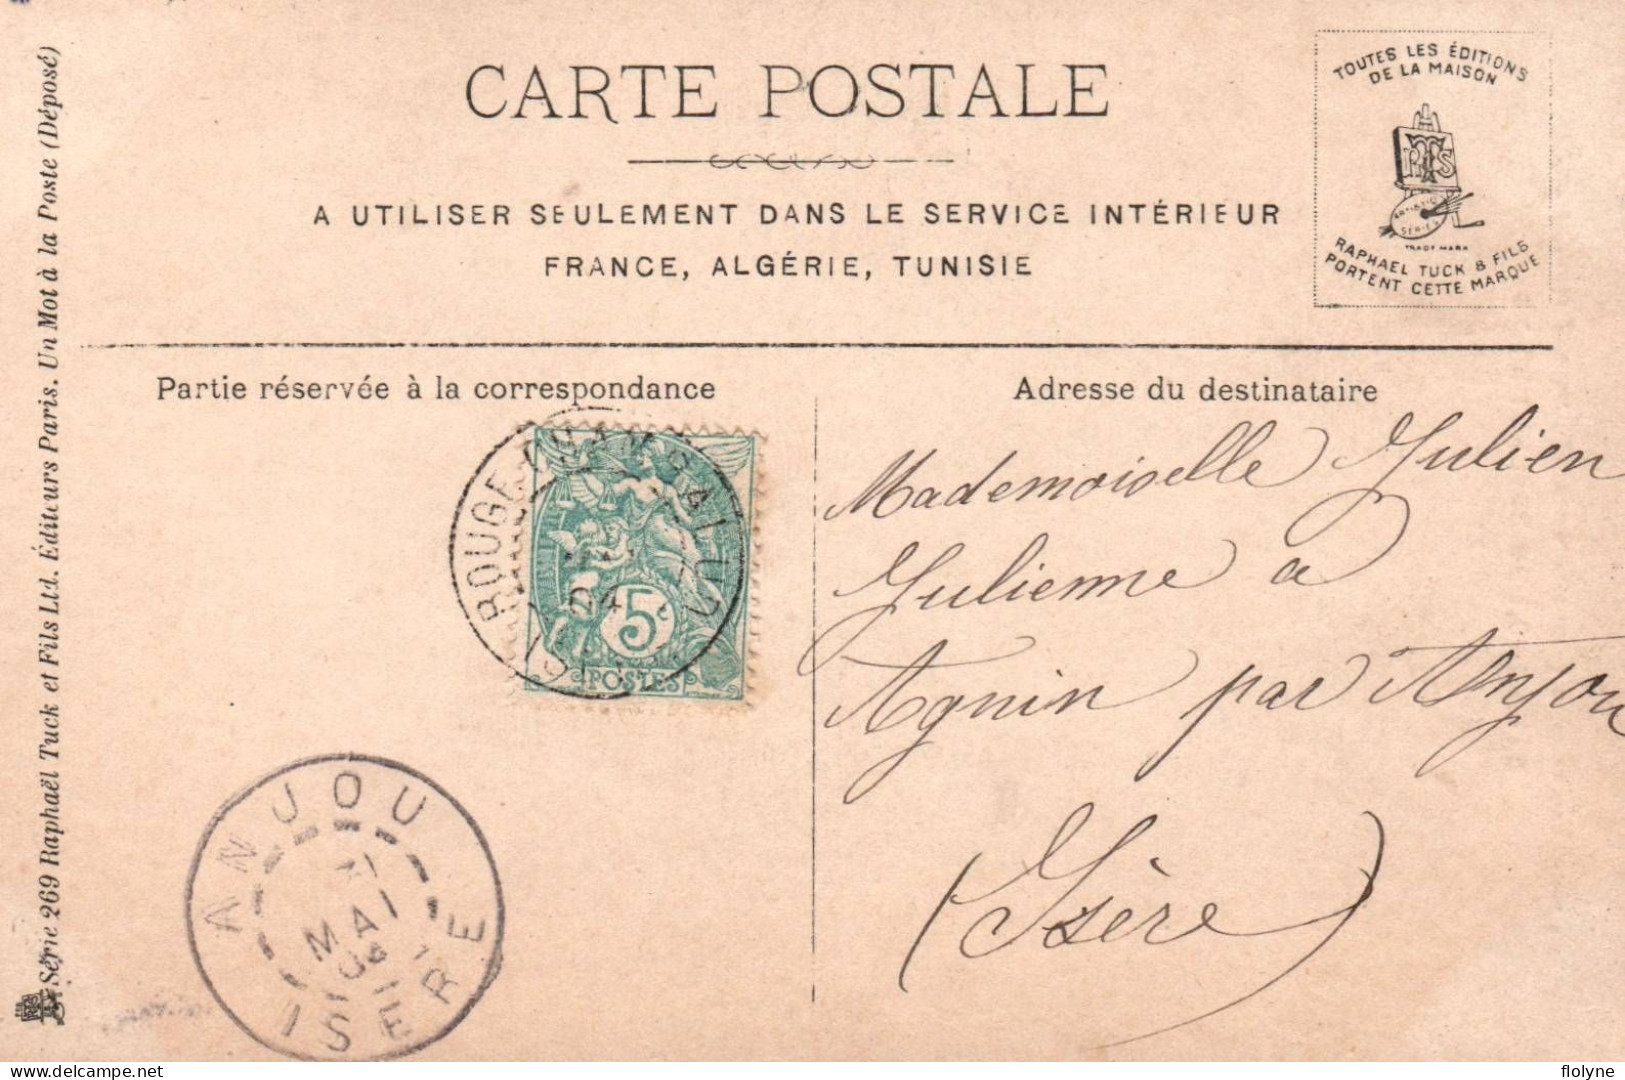 CARTE POSTALE
A UTILISER SEULEMENT DANS LE SERVICE INTÉRIEUR
FRANCE, ALGÉRIE, TUNISIE
TOUTES LES ÉDITIONS
DE LA MAISON
ARTISTIC
SERIES
TRADE MARK
RAPHAEL TUCK & FILS
PORTENT CETTE MARQUE
Série 269 Raphaël Tuck et Fils Ltd. Éditeurs Paris. Un Mot à la Poste (Déposé)
Partie réservée à la correspondance
Adresse du destinataire
5c
POSTES
04
Mademoiselle Julien
Julienne a
Agnin par Anjou
(Isère)
ANJOU
MAI
ISERE
delcampe.net
flolyne